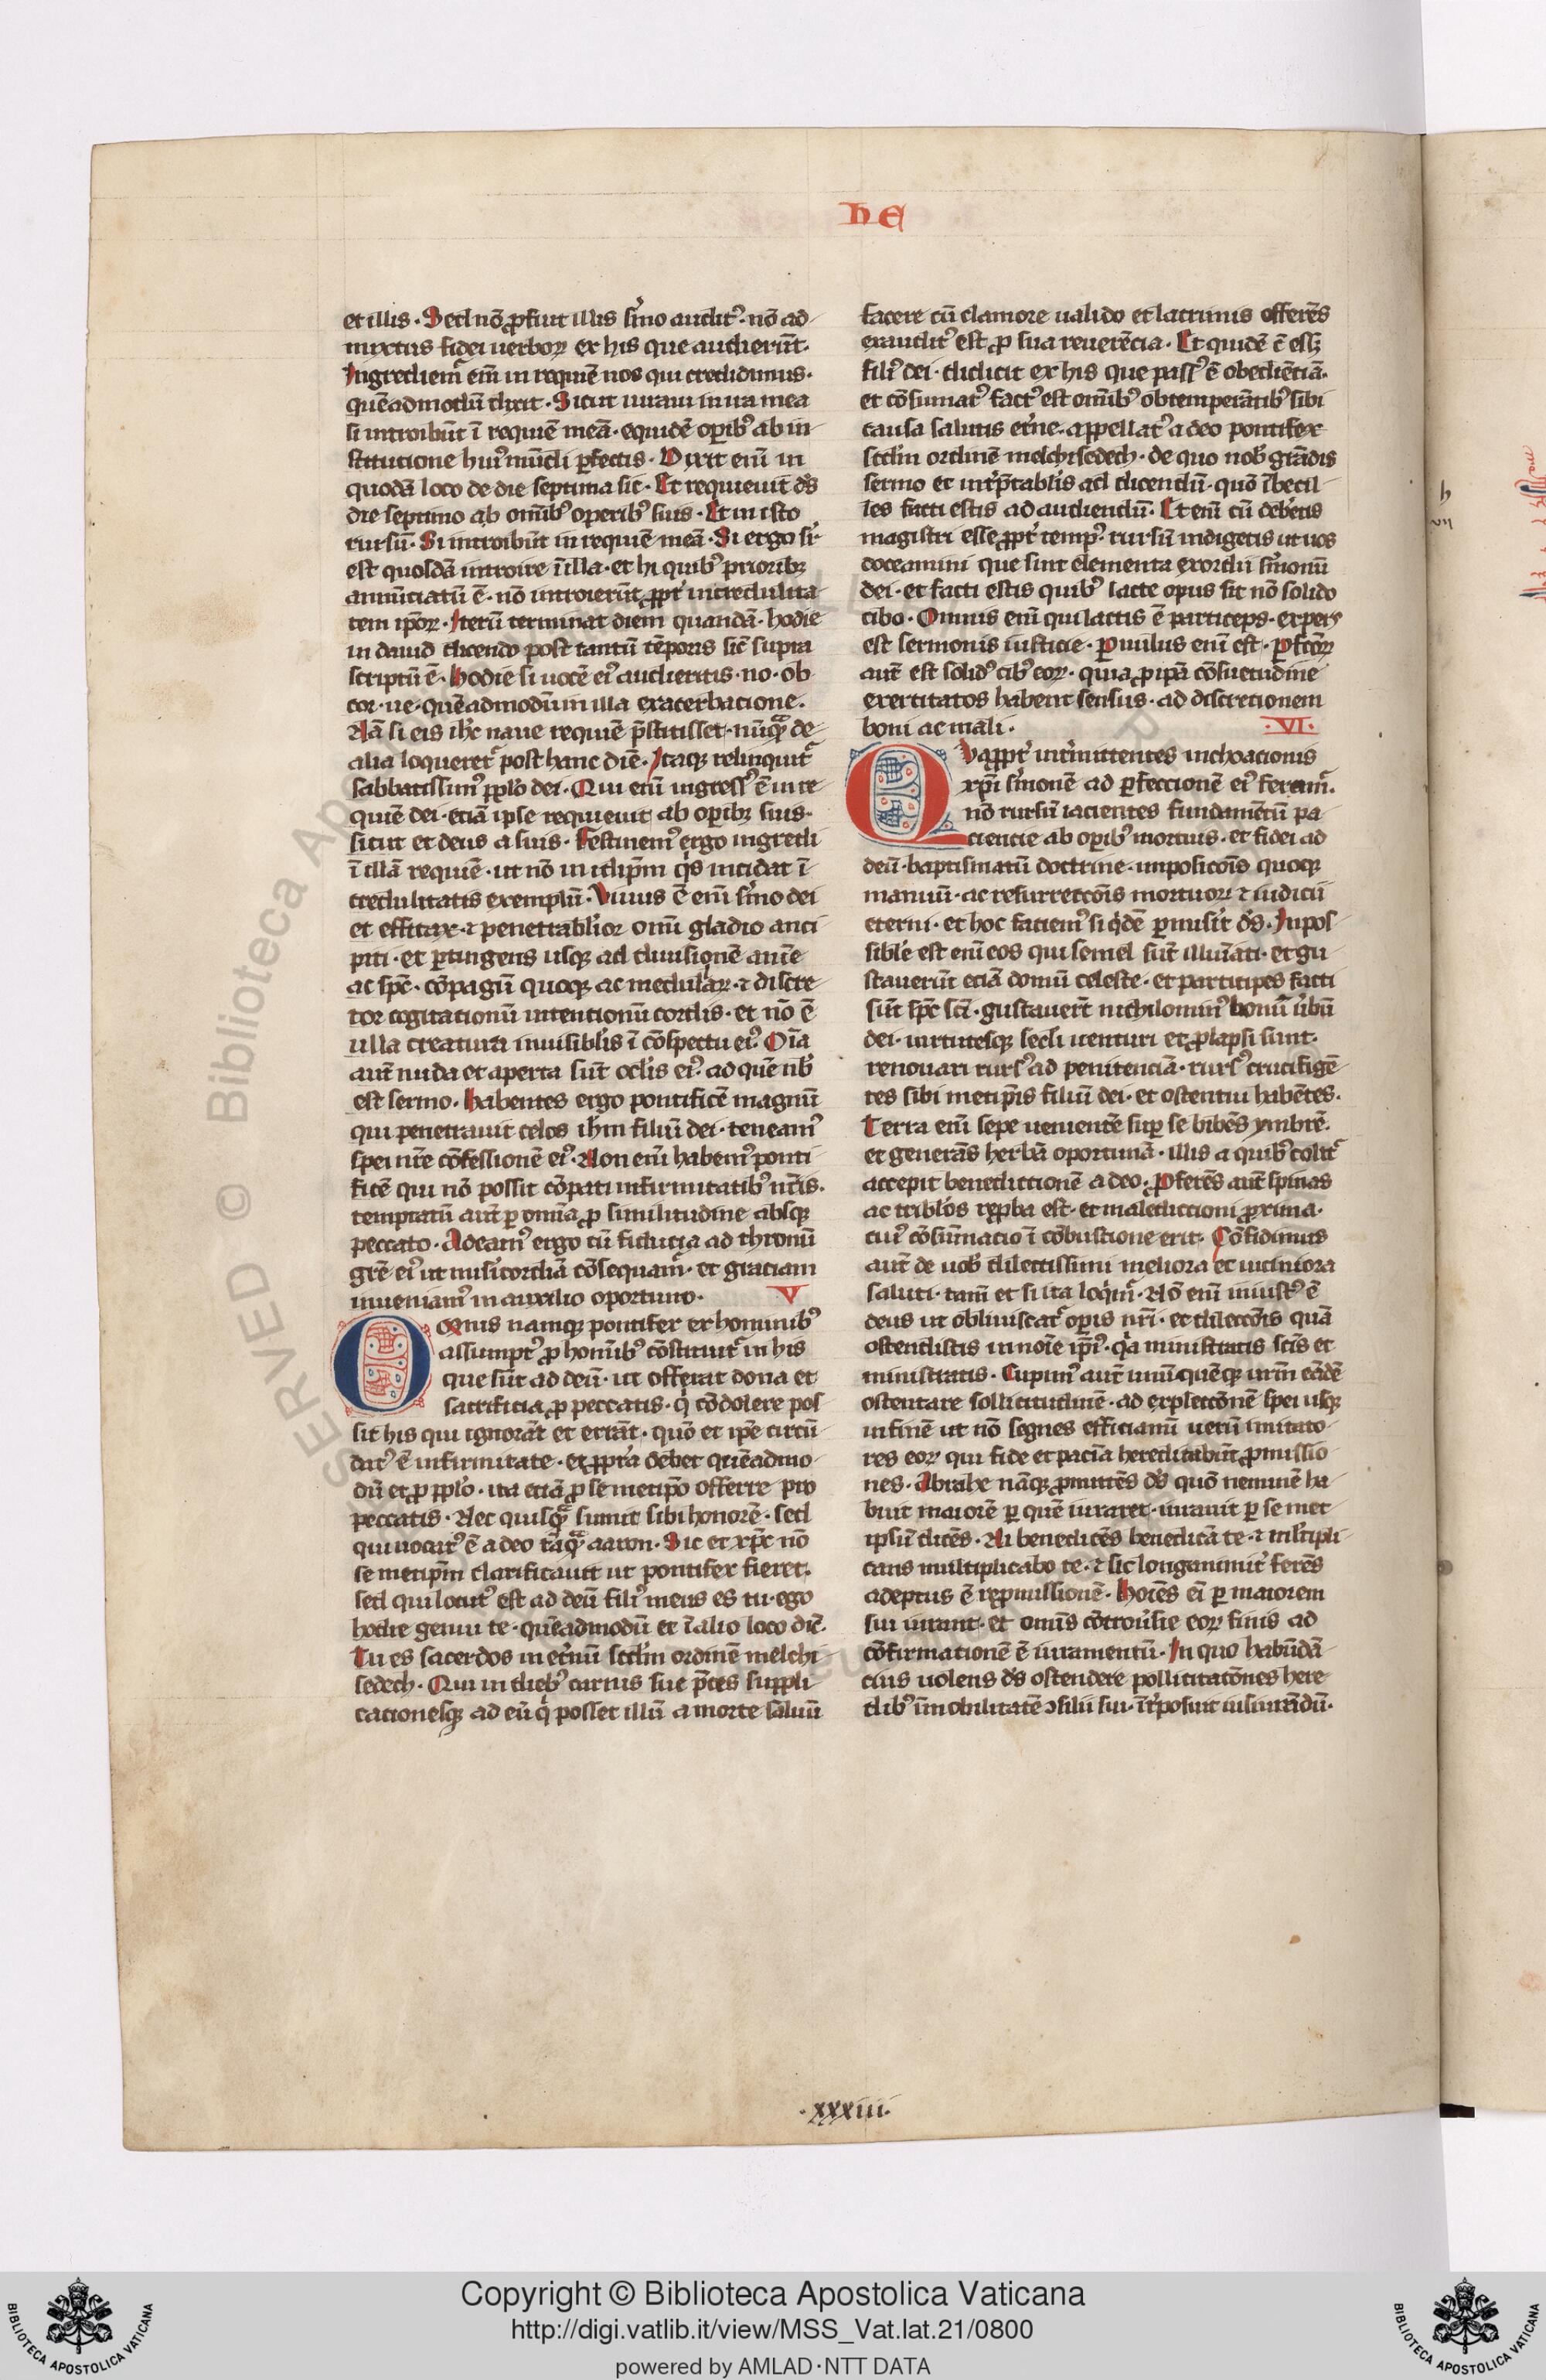 HE
et illis · Sed nō ꝓfuit illis ẜmo audit᷒ · nō ad
mixtus fidei uerboꝝ ex his que audierūt ·
Ingrediemr̄ em̄ in requiē nos qui credidimus ·
quēadmodū dixit · Sicut iuraui in ira mea
si introibūt ī requiē meā · equidē oꝑib᷒ ab in
stitucione hui᷒ mūdi ꝑfectis · Dixit enī in
quodā loco de die septima sic · Et requieuit ds̄
die septimo ab omīb᷒ operib᷒ suis · Et in isto
rursū · Si introibūt in requiē meā · Si ergo suꝑ
est quosdā introire ī illā · et hi quib᷒ priorib᷒
annūciatū ē · nō introierūt ꝓpt̄ incredulita
tem ip̄oꝝ · Iterū terminat diem quandā · hodie
in dauid dicendo post tantū tēporis sic̄ supra
scriptū ē · Hodie si uocē ei᷒ audieritis · no · ob
cor · ue · quēadmodū in illa exacerbacione ·
Nā si eis ih̄c naue requiē p̄stitisset · nūqᷓ de
alia loqueret᷑ post hanc diē · Itaqꝫ relinquit᷑
sabbatissim᷒ pplo dei · Qui enī ingress᷒ ē in re
quiē dei · eciā ipse requieuit ab oꝑibꝫ suis ·
sicut et deus a suis · Festinem᷒ ergo ingredi
ī illā requiē · ut nō in idip̄m q̄s incidat ī
credulitatis exemplū · Viuus ē enī ẜmo dei
et efficax · ⁊ penetrabl̄ior omī gladio anci
piti · et ꝑtingens usqꝫ ad diuisionē anīe
ac spc̄ · cōpagū quoqꝫ ac medulaꝝ · ⁊ discre
tor cogitationū intentionū cordis · et nō ē
ulla creatura inuisibl̄is ī cōspectu ei᷒ · Oīa
aut̄ nuda et aperta sūt ocl̄is ei᷒ · ad quē nb̄
est sermo · Habentes ergo pontificē magnū
qui penetrauit celos ih̄m filiū dei · teneam᷒
spei nr̄e cōfessionē ei᷒ · Non enī habem᷒ ponti
ficē qui nō possit cōpati infirmitatib᷒ nr̄is ·
temptatū aut̄ ꝑ omia ꝓ similitudine absqꝫ
peccato · Adeam᷒ ergo cū fiducia ad thronū
gr̄e ei᷒ ut misicordiā cōsequam᷑ · et graciam
inueniam᷒ in auxilio oportuno ·
V
Omnis namqꝫ pontifex ex hominib᷒
assumpt᷒ ꝓ homīb᷒ cōstituit᷑ in his
que sūt ad deū · ut offerat dona et
sacrificia ꝓ peccatis · q̇ cōdolere pos
sit his qui ignorāt et errāt · quō et ip̄e circū
dat᷒ ē infirmitate · et ꝓpt̄a debet quēadmo
dū et ꝓ pplo · ita eciā ꝓ semetip̄o offerre pro
peccatis · Nec quisqᷓ sumit sibi honorē · sed
qui uocat᷒ ē a deo tāqᷓ aaron · Sic et xp̄c nō
se metip̄m clarificauit ut pontifex fieret ·
sed qui locut᷒ est ad deū fili᷒ meus es tu · ego
hodie genui te · quēadmodū et ī alio loco dic̄ ·
Tu es sacerdos in et̄nū sc̄dm ordinē melchi
sedech · Qui in dieb᷒ carnis sue p̄ces suppli
cacionesqꝫ ad eū q̇ posset illū a morte saluū
facere cū clamore ualido et lacrimis offerēs
exaudit᷒ est ꝓ sua reuerēcia · Et quidē ē essꝫ
fili᷒ dei · didicit ex his que pass᷒ ē obediētiā ·
et cōsumat᷒ fact᷒ est omīb᷒ obtemperātib᷒ sibi
causa salutis et̄ne · appellat᷒ a deo pontifex
sc̄dm ordinē melchisedech · de quo nob̄ grādis
sermo et int̄p̄tabl̄is ad dicendū · quō ībecil
les facti estis ad audiendū · Et enī cū debētis
magistri esse ꝓpt̄ temp᷒ · rursū indigetis ut uos
doceamini que sint elementa exordii ẜmonū
dei · et facti estis quib᷒ lacte opus sit nō solido
cibo · Omnis enī qui lactis ē particeps · expers
est sermonis iusticie · Paruulus enī est · Pfcōꝝ
aut̄ est solid᷒ cib᷒ eoꝝ · qui a ꝓ ip̄ā cōsuetudine
exercitatos habent sensus · ad discretionem
boni ac mali ·
· VI ·
Quapropt̄ int̄mittentes inchoacionis
xp̄i ẜmonē ad ꝑfeccionē ei᷒ feram᷑ ·
nō rursū iacientes fundamētū pe
nitencie ab oꝑib᷒ mortuis · et fidei ad
deū · baptismatū doctrine · imposicōis quoqꝫ
manuū · ac resurrectōis mortuoꝝ ⁊ iudicii
eterni · et hoc faciem᷒ si q̇dē ꝑmis̄it ds̄ · Inpos
sible est enī eos qui semel sūt illuīati · et gu
stauerūt eciā donū celeste · et participes facti
sūt spc̄ sci · gustauert̄ nichilomin᷒ bonū ūbū
dei · uirtutesqꝫ secli uenturi et ꝓlapsi sunt ·
renouari rurs᷒ ad penitenciā · rurs᷒ crucifigē
tes sibi metip̄is filiū dei · et ostentui habētes ·
Terra enī sepe uenientē suꝑ se bibēs ymbrē ·
et generās herbā oportunā · illis a quib᷒ colit᷑
accepit benedictionē a deo · Pferēs aut̄ spinas
ac tribl̄os rep̱ba est · et maledictioni ꝓxima ·
cui᷒ cōsūmacio ī cōbustione erit · Cōfidimus
aut̄ de uob̄ dilectissimi meliora et uiciniora
saluti · tam̄ et si ita loq̇m᷑ · Nō enī iniust᷒ ē
deus ut obliuiscat᷑ oꝑis nr̄i · et dilectōis quā
ostendistis in noīe ip̄i᷒ · q̇a ministratis sc̄is et
ministratis · Cupim᷒ aut̄ unūquēqꝫ ur̄m eādē
ostentare sollicitudinē · ad expletōnē spei usqꝫ
in finē ut nō segnes efficiamī uerū imitato
res eoꝝ qui fide et paciā hereditabūt ꝓmissio
nes · Abrahe nāqꝫ ꝓmittēs ds̄ quō neminē ha
buit maiorē ꝑ quē iuraret · iurauit ꝑ se met
ipsū dicēs · Ni benedicēs benedicā te · ⁊ ml̄tipli
cans multiplicabo te · ⁊ sic longanimit̄ ferēs
adeptus ē repmissionē · Hoīes eī ꝑ maiorem
sui iurant · et omīs cōtrou̇sie eoꝝ finis ad
cōfirmationē ē iuramentū · In quo habūdā
cius uolens ds̄ ostendere pollicitatōnes here
dib᷒ īmobilitatē ↄsilii sui · īt̄posuit iusiurādū ·
· xxxiii ·
Copyright © Biblioteca Apostolica Vaticana
http://digi.vatlib.it/view/MSS_Vat.lat.21/0800
powered by AMLAD·NTT DATA
BIBLIOTECA APOSTOLICA VATICANA
BIBLIOTECA APOSTOLICA VATICANA